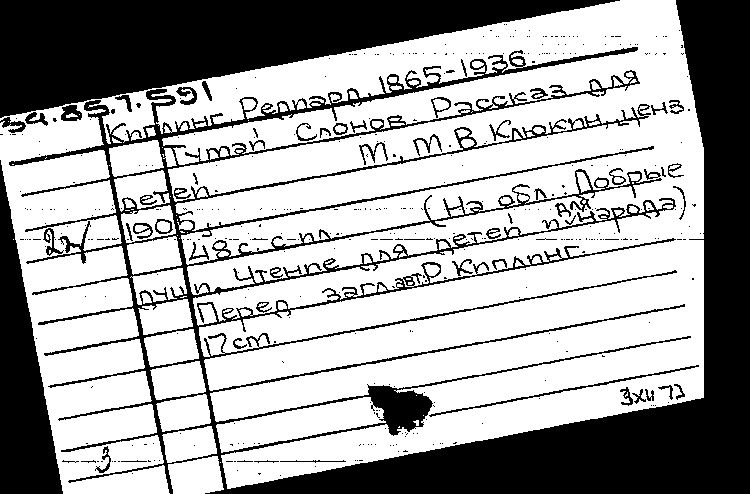 34.85.7.591
Киплинг, Редиард, 1865-1936.
Тумай Слонов. Рассказ для
детей. М., М.В. Клюкин, ценз.
1905,
48 с. с ил. (На обл.: Добрые
души. Чтение для детей и для народа).
Перед загл. авт: Р. Киплинг.
17 cm.
3
3 XII 73